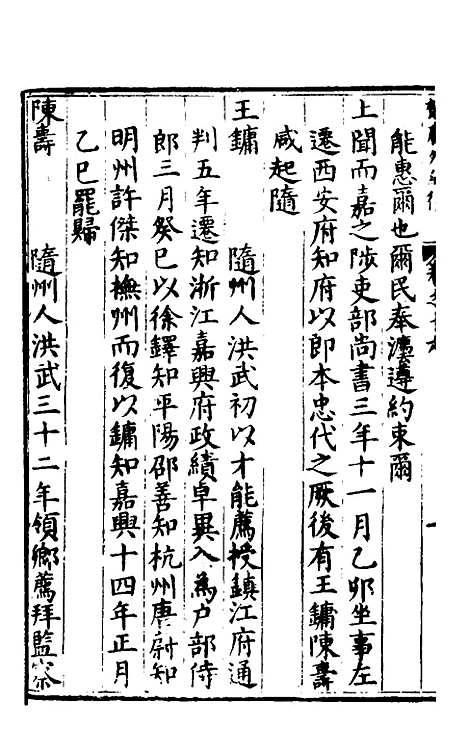 能惠爾也爾民奉漢遵約束爾
上聞而嘉之陟吏部尚書三年十一月乙卯坐事左
遷西安府知府以即本忠代之厥後有王鏞陳壽
咸起隨
王鏞　　隨州人洪武初以才能薦授鎮江府通
判五年遷知浙江嘉興府政績卓異入為户部侍
郎三月癸巳以徐鐸知平陽邵善知杭州唐尉知
明州許傑知撫州而復以鏞知嘉興十四年正月
乙巳罷歸
陳壽　　隨州人洪武三十二年領鄉薦拜監察